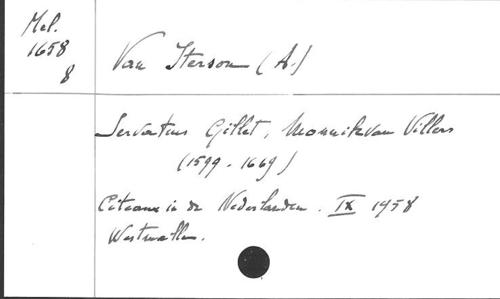 Mel.
1658
8
Van Iterson (A.)
Servatius Gillet, Monnik van Villers
(1599 - 1669)
Citeaux in de Nederlanden. IX 1958
Westmalle.